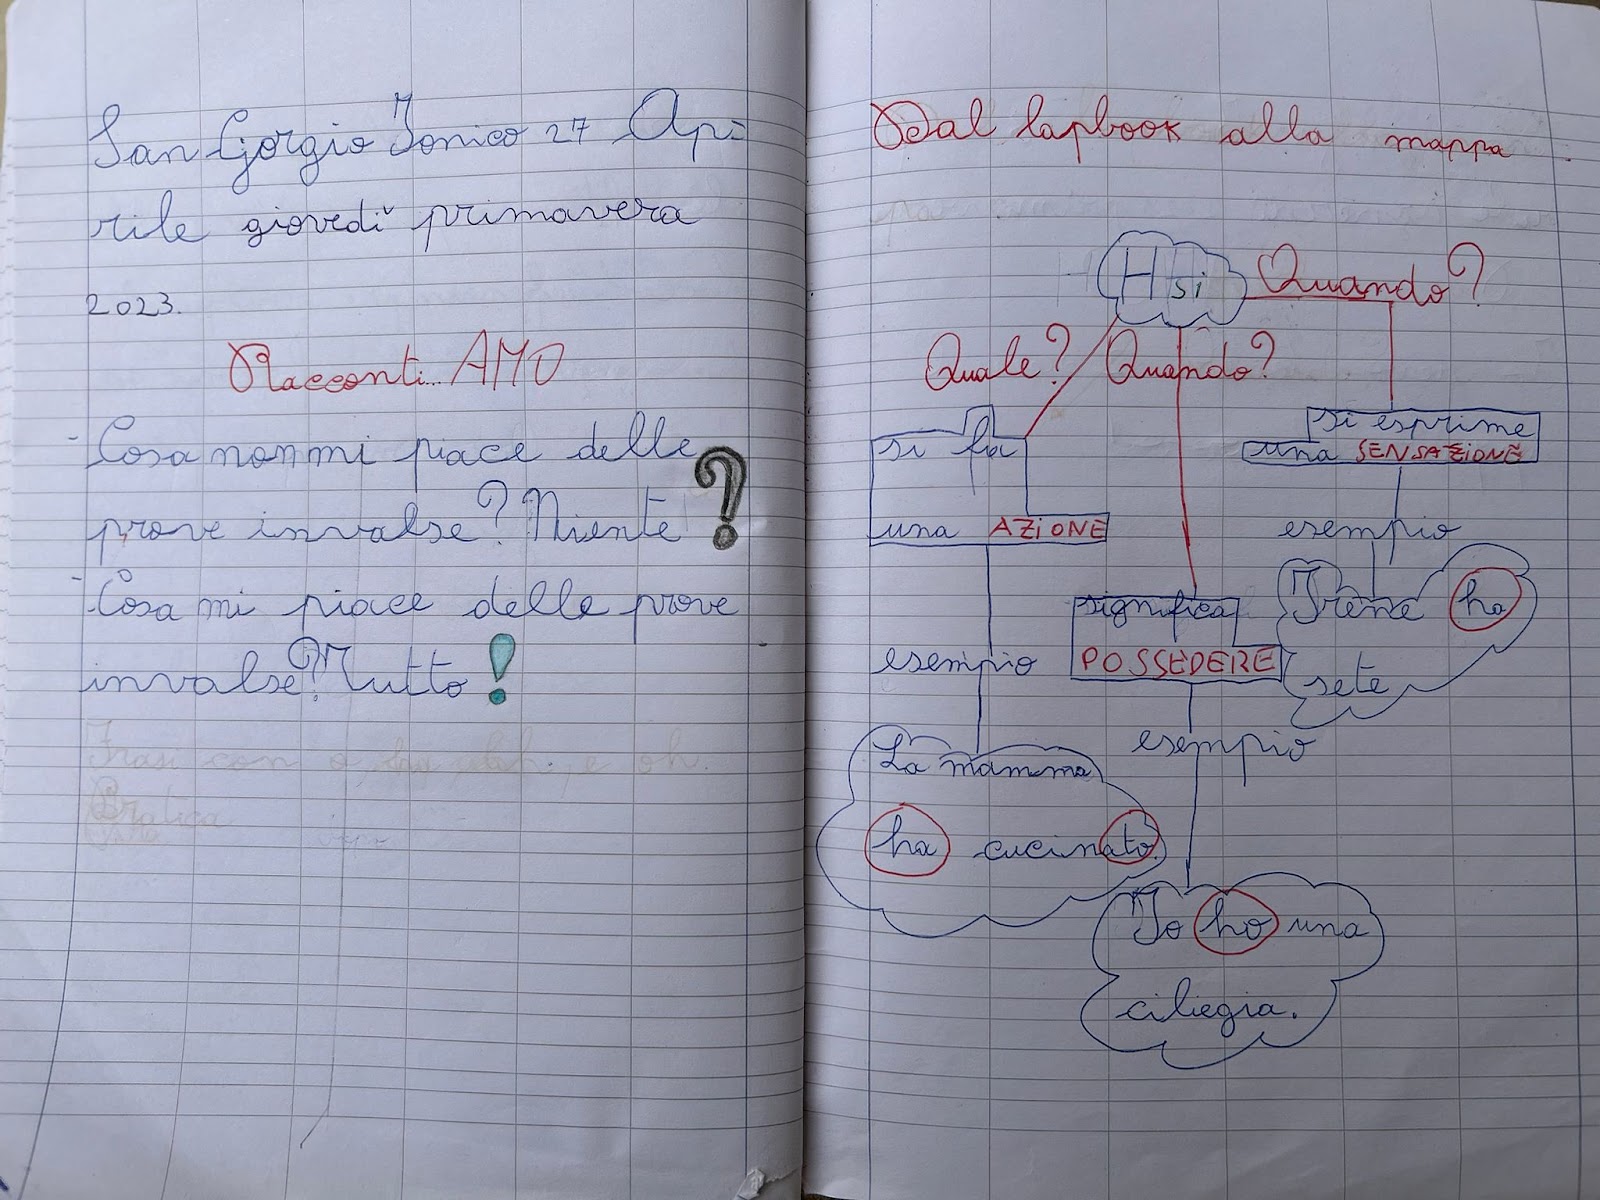 San Giorgio Jonico 27 Ap-
rile giovedì primavera
2023.
Racconti... AMO
- Cosa non mi piace delle
prove invalse? Niente?
- Cosa mi piace delle prove
invalse? Tutto!
Frasi con o, ho, oh. e oh.
Pratica
Dal lapbook alla mappa
H si Quando?
Quale? Quando?
si esprime
si fa
una SENSAZIONE
una AZIONE
esempio
Irene ha
significa
esempio
POSSEDERE
sete
esempio
La mamma
ha cucinato.
Io ho una
ciliegia.